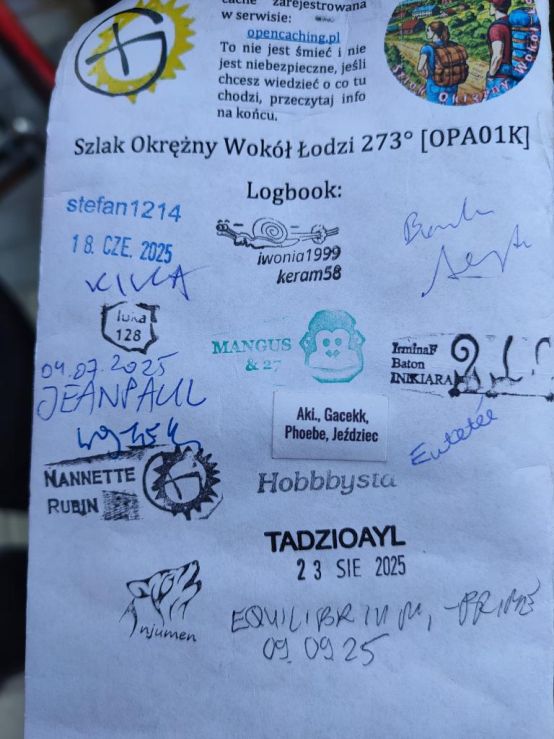 cache zarejestrowana
w serwisie:
opencaching.pl
To nie jest śmieć i nie
jest niebezpieczne, jeśli
chcesz wiedzieć o co tu
chodzi, przeczytaj info
na końcu.
Szlak Okrężny Wokół
Szlak Okrężny Wokół Łodzi 273° [OPA01K]
Logbook:
stefan1214
18. CZE. 2025
KIKA
iwonia1999
keram58
luka
128
MANGUS
& 27
IrminaF
Baton
INKIARA
04.07.2025
JEANPAUL
Aki., Gacekk,
Phoebe, Jeździec
Ewtetée
NANNETTE
RUBIN
Hobbbysta
TADZIOAYL
23 SIE 2025
Anjumen
EQUILIBRIUM, PRIME
09.09.25